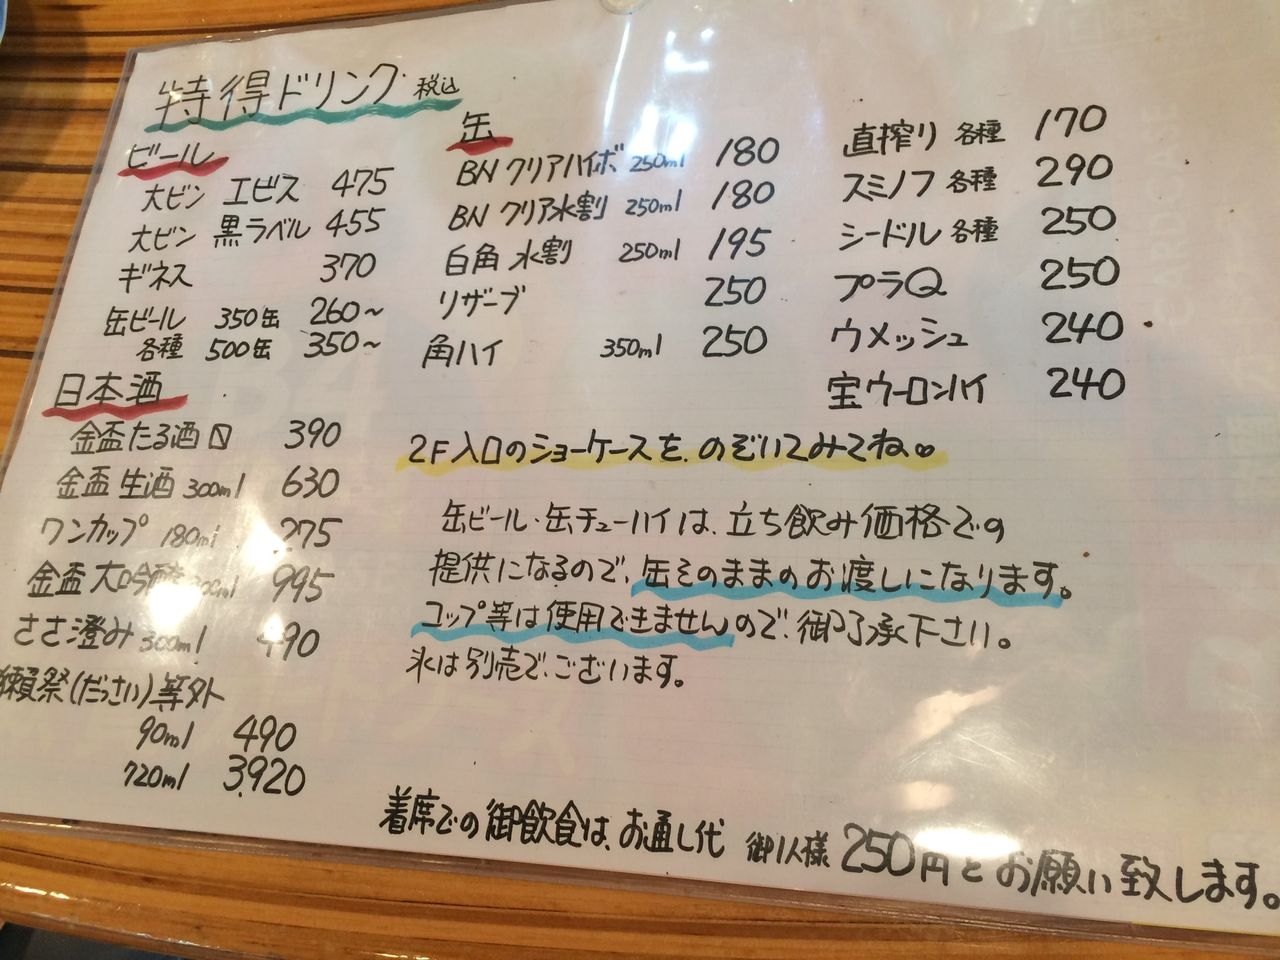 特得ドリンク 税込
ビール
大ビン エビス 475
大ビン 黒ラベル 455
ギネス 370
缶ビール 350缶 260~
各種 500缶 350~
日本酒
金盃たる酒 390
金盃 生酒 300ml 630
ワンカップ 180ml 275
金盃 大吟醸 300ml 995
ささ澄み 300ml 490
獺祭(だっさい)等外
90ml 490
720ml 3,920
缶
BN クリアハイボ 250ml 180
BN クリア水割 250ml 180
白角 水割 250ml 195
リザーブ 250
角ハイ 350ml 250
直搾り 各種 170
スミノフ 各種 290
シードル 各種 250
プラQ 250
ウメッシュ 240
宝ウーロンハイ 240
2F入口のショーケースを、のぞいてみてね
缶ビール・缶チューハイは、立ち飲み価格での
提供になるので、缶そのままのお渡しになります。
コップ等は使用できませんので、御了承下さい。
氷は別売でございます。
着席での御飲食は、お通し代 御1人様 250円とお願い致します。